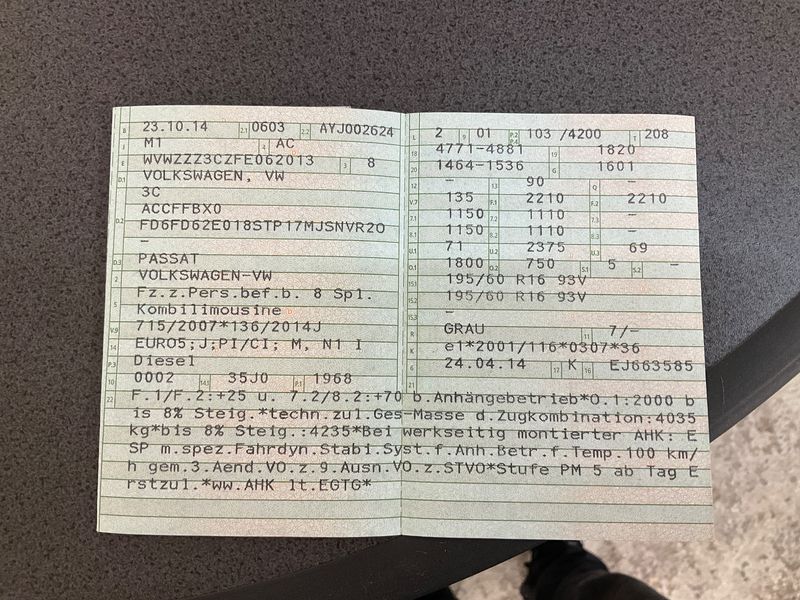 B 23.10.14 2.1 0603 2.2 AYJ002624
J M1 4 AC
E WVWZZZ3CZFE062013 3 8
D.1 VOLKSWAGEN, VW
3C
D.2 ACCFFBX0
FD6FD62E018STP17MJSNVR2O
–
D.3 PASSAT
2 VOLKSWAGEN-VW
5 Fz.z.Pers.bef.b. 8 Spl.
Kombilimousine
V.9 715/2007*136/2014J
14 EURO5;J;PI/CI; M, N1 I
P.3 Diesel
10 0002 14.1 35J0 P.1 1968
L 2 9 01 P.2 P.4 103 /4200 T 208
18 4771-4881 19 1820
20 1464-1536 G 1601
12 – 13 90 Q –
V.7 135 F.1 2210 F.2 2210
7.1 1150 7.2 1110 7.3 –
8.1 1150 8.2 1110 8.3 –
U.1 71 U.2 2375 U.3 69
O.1 1800 O.2 750 S.1 5 S.2 –
15.1 195/60 R16 93V
15.2 195/60 R16 93V
15.3 –
R GRAU 11 7/–
K e1*2001/116*0307*36
6 24.04.14 17 K 16 EJ663585
22 F.1/F.2:+25 u. 7.2/8.2:+70 b.Anhängebetrieb*O.1:2000 b
is 8% Steig.*techn.zul.Ges-Masse d.Zugkombination:4035
kg*bis 8% Steig.:4235*Bei werkseitig montierter AHK: E
SP m.spez.Fahrdyn.Stabi.Syst.f.Anh.Betr.f.Temp.100 km/
h gem.3.Aend.VO.z.9.Ausn.VO.z.STVO*Stufe PM 5 ab Tag E
rstzul.*ww.AHK lt.EGTG*